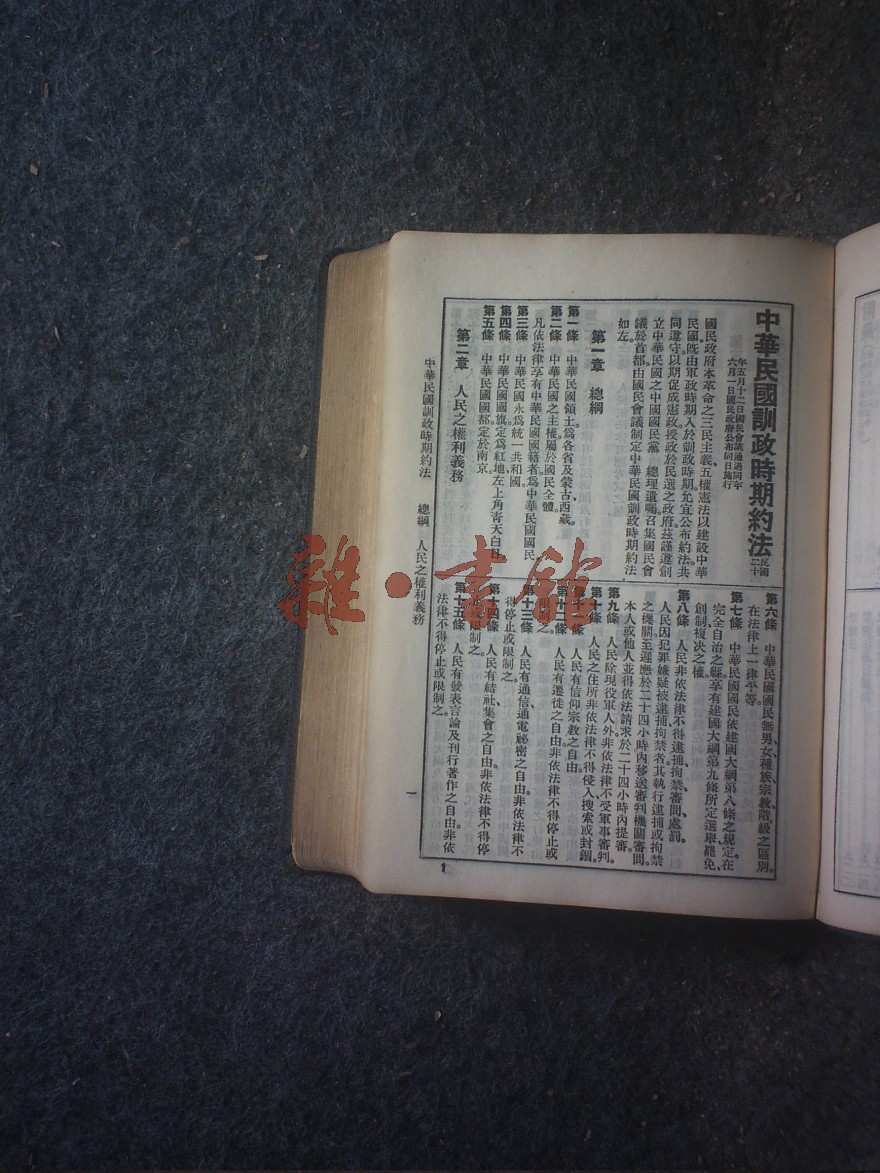 中華民國訓政時期約法 民國二十
年五月十二日國民會議通過同年
六月一日國民政府公布同日施行
國民政府本革命之三民主義、五權憲法以建設中華
民國。旣由軍政時期入於訓政時期。允宜公布約法。共
同遵守以期促成憲政授政於民選之政府茲謹遵創
立中華民國之中國國民黨 總理遺囑召集國民會
議於首都由國民會議制定中華民國訓政時期約法
如左。
第一章 總綱
第一條 中華民國領土。爲各省及蒙古、西藏。
第二條 中華民國之主權屬於國民全體。
凡依法律享有中華民國國籍者爲中華民國國民
第三條 中華民國永爲統一共和國。
第四條 中華民國國旗定爲紅地左上角青天白日
第五條 中華民國國都定於南京。
第二章 人民之權利義務
第六條 中華民國國民無男、女、種族、宗教、階級之區別。
在法律上一律平等。
第七條 中華民國國民依建國大綱第八條之規定在
完全自治之縣享有建國大綱第九條所定選舉、罷免、
創制、複决之權。
第八條 人民非依法律不得逮捕拘禁審問處罰。
人民因犯罪嫌疑被逮捕拘禁者其執行逮捕或拘禁
之機關至遲應於二十四小時內移送審判機關審問。
本人或他人並得依法請求於二十四小時內提審。
第九條 人民除現役軍人外非依法律不受軍事審判。
第十條 人民之住所非依法律不得侵入搜索或封錮。
第十一條 人民有信仰宗教之自由
第十二條 人民有遷徙之自由非依法律不得停止或
限制之。
第十三條 人民有通信通電祕密之自由非依法律不
得停止或限制之。
第十四條 人民有結社集會之自由非依法律不得停
止或限制之。
第十五條 人民有發表言論及刊行著作之自由非依
法律不得停止或限制之。
中華民國訓政時期約法 總綱 人民之權利義務
一
1
雜·書館